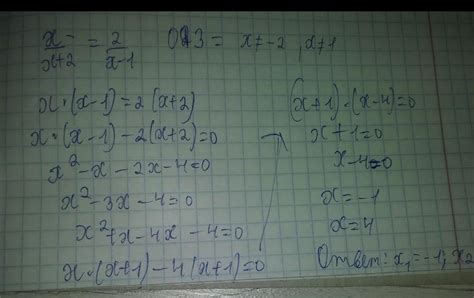 x/x+2 = 2/x-1 ОДЗ = x≠-2, x≠1
x·(x-1)=2(x+2)
x·(x-1)-2(x+2)=0
x²-x-2x-4=0
x²-3x-4=0
x²+x-4x-4=0
x·(x+1)-4(x+1)=0
(x+1)·(x-4)=0
x+1=0
x-4=0
x=-1
x=4
Ответ: x₁=-1, x₂